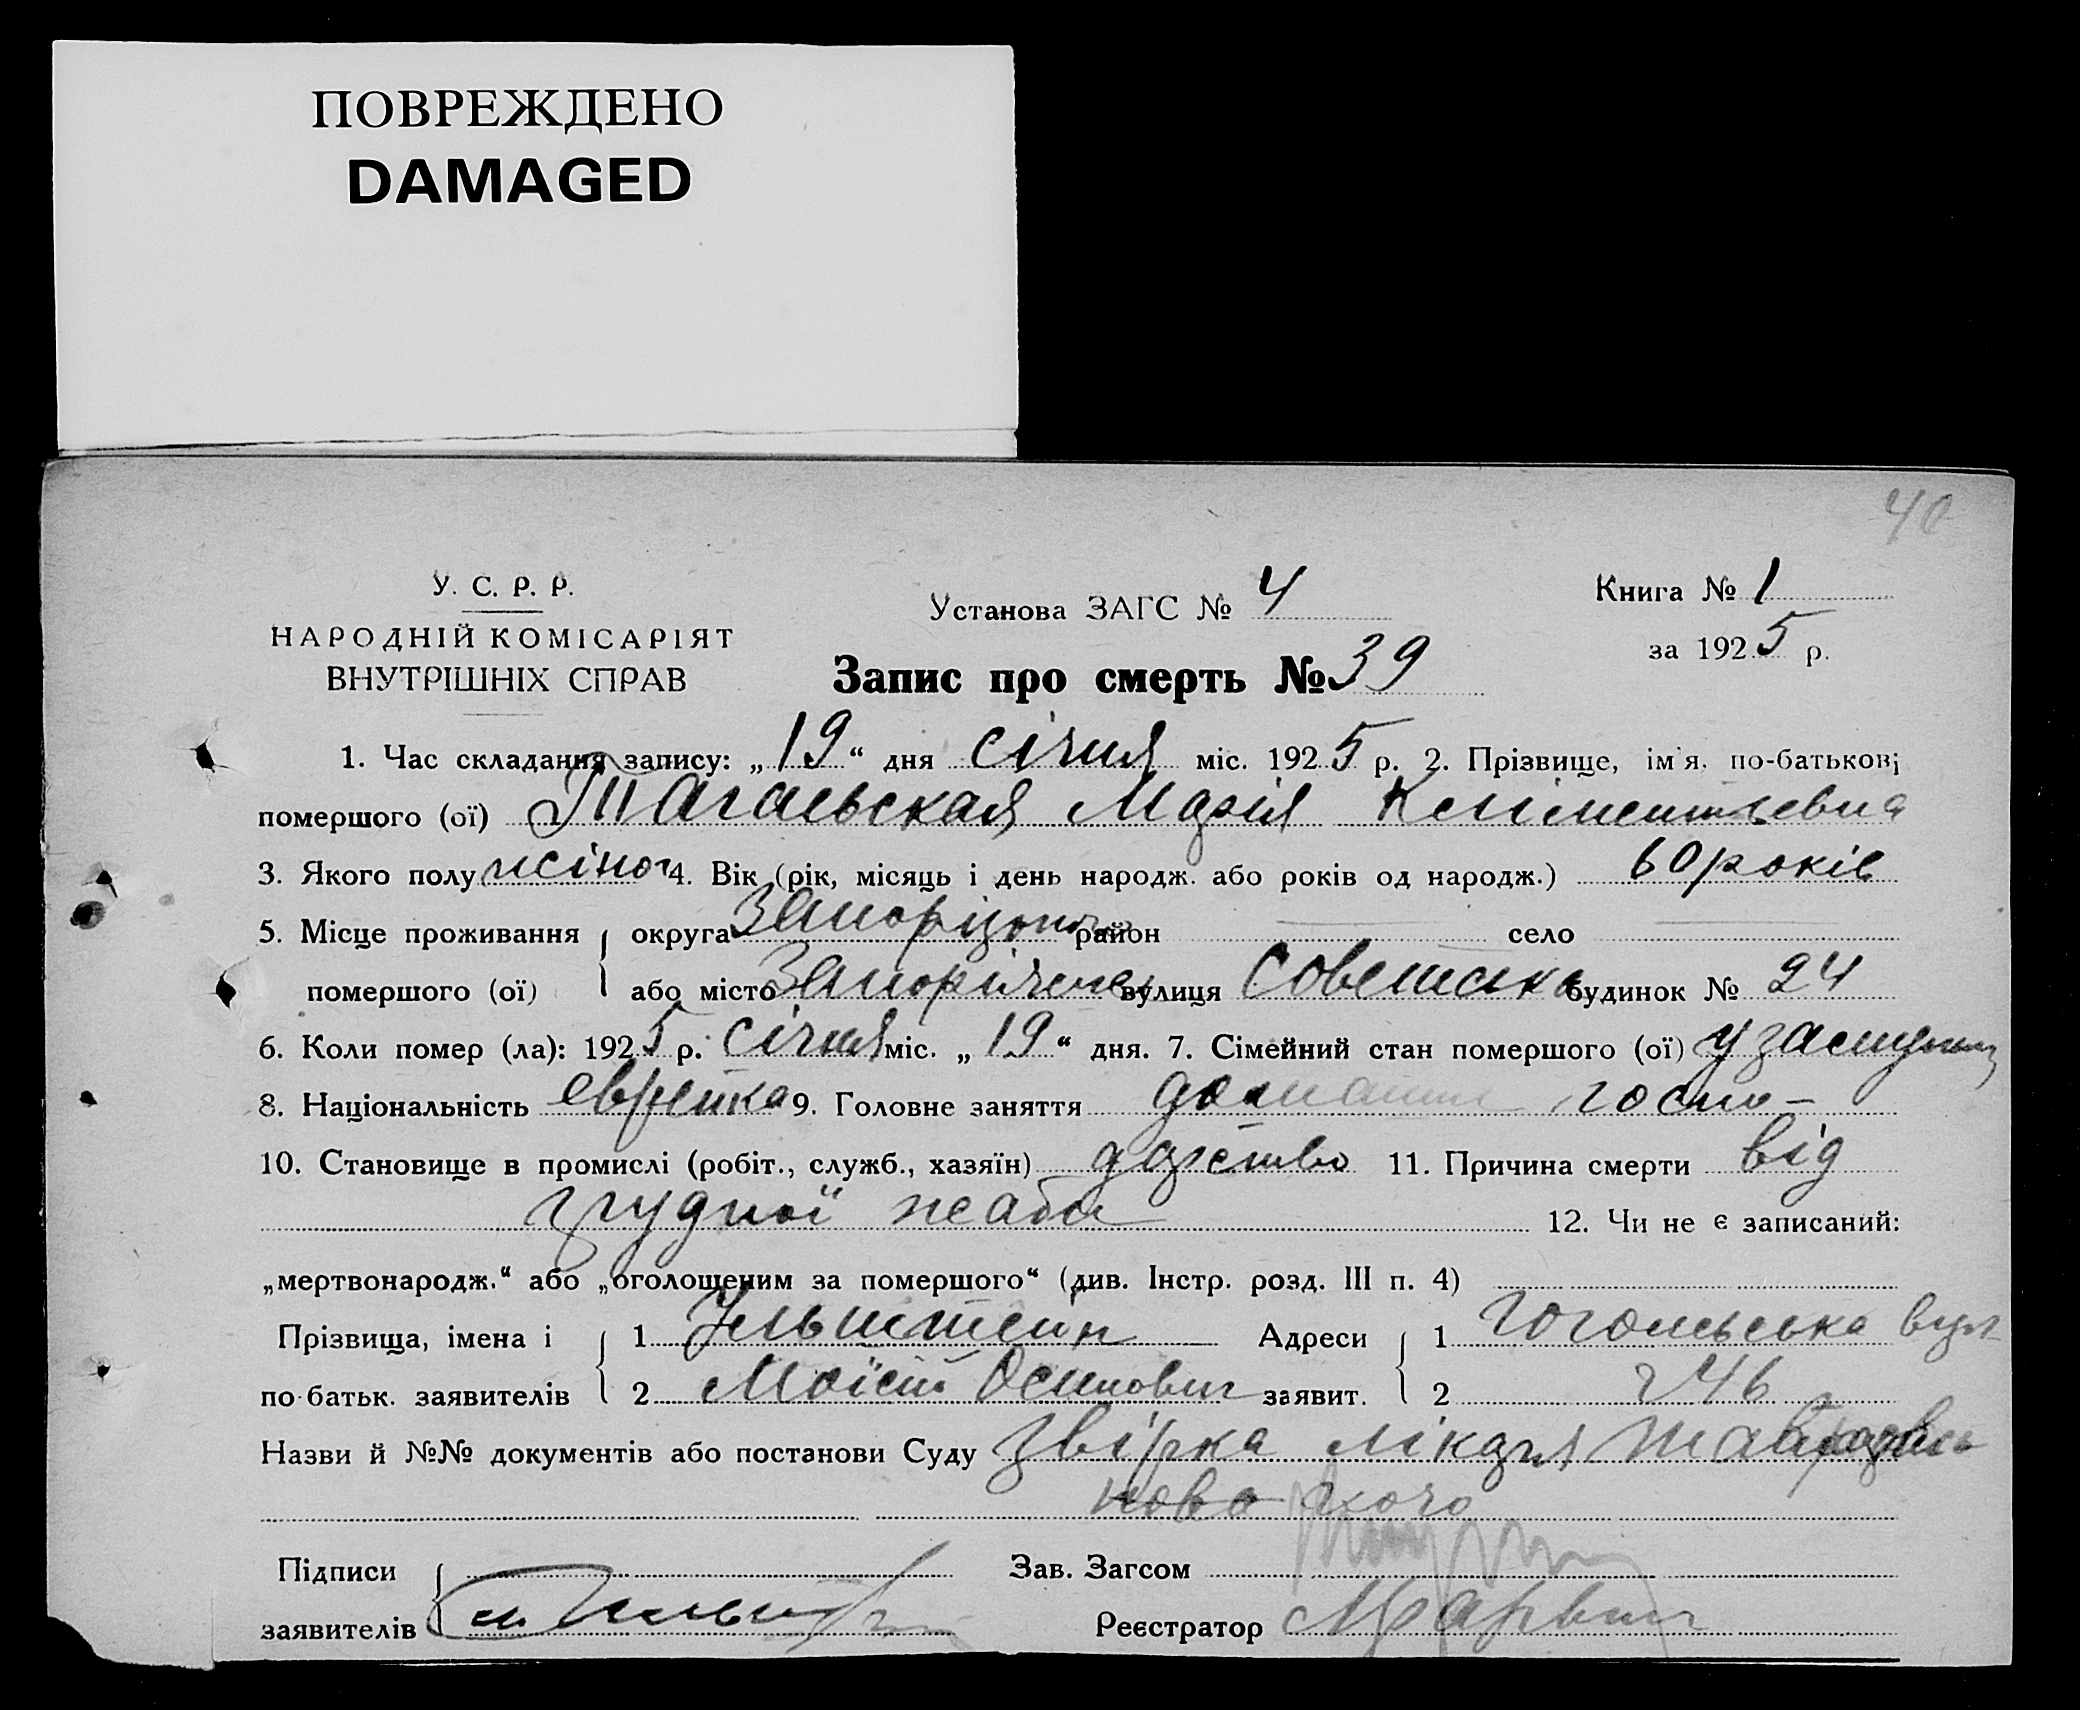 ПОВРЕЖДЕНО
DAMAGED
40
У. С. Р. Р.
НАРОДНІЙ КОМІСАРІЯТ
ВНУТРІШНІХ СПРАВ
Установа ЗАГС № 4
Книга № 1
за 1925 р.
Запис про смерть № 39
1. Час складання запису: „19“ дня січня міс. 1925 р. 2. Прізвище, ім'я, по-батькові
помершого (ої) Марія
3. Якого полу жіноч 4. Вік (рік, місяць і день народж. або років од народж.) 60 років
5. Місце проживання округа район село
помершого (ої) або місто вулиця будинок № 24
6. Коли помер (ла): 1925 р. січня міс. „19“ дня. 7. Сімейний стан помершого (ої)
8. Національність еврейка 9. Головне заняття госпо-
10. Становище в промислі (робіт., служб., хазяїн) дарство 11. Причина смерти від
грудної жаби 12. Чи не є записаний:
„мертвонародж.“ або „оголошеним за помершого“ (див. Інстр. розд. III п. 4)
Прізвища, імена і 1 Адреси 1 Гогольська вул
по-батьк. заявителів 2 Осипович заявит. 2 46
Назви й №№ документів або постанови Суду лікаря
Підписи Зав. Загсом
заявителів Реєстратор